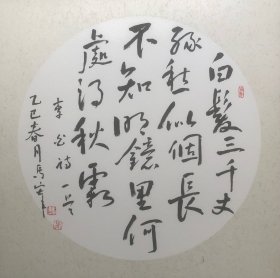 白髮三千丈
緣愁似個長
不知明鏡里何
處得秋霜
李白詩一首
乙巳春月